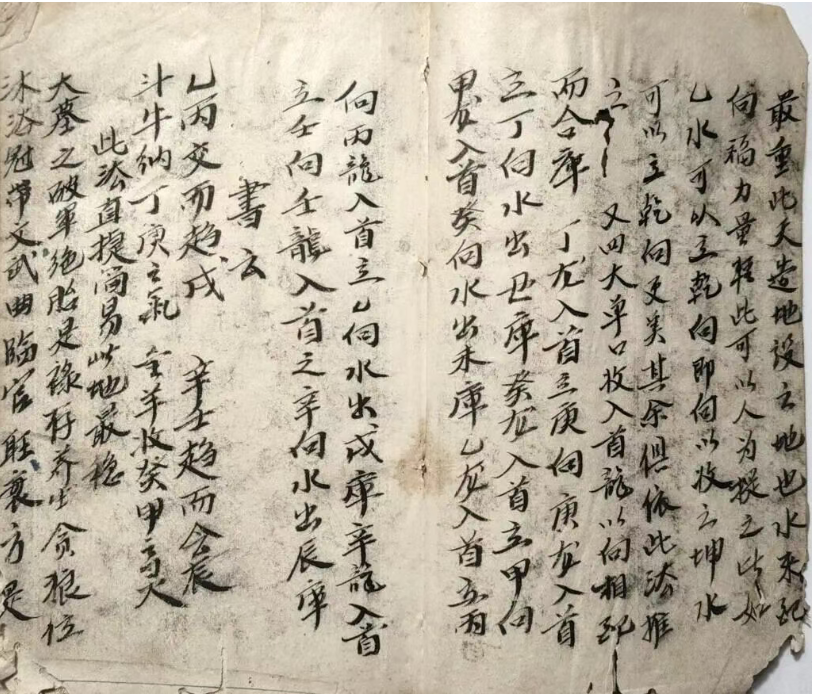 最重此天造地设之地也水来配
向福力量轻此可以人为接之此如
乙水可以立乾向即向以收之坤水
可以立乾向更美其余俱依此法推
之 又四大单口收入首龍以向相配
而合庫 丁龙入首立庚向庚龙入首
立丁向水出丑庫癸龙入首立甲向
甲龙入首癸向水出未庫乙龙入首立丙
向丙龍入首立乙向水出戌庫辛龍入首
立壬向壬龍入首立辛向水出辰庫
書云
乙丙交而趋戌 辛壬趋而会辰
斗牛纳丁庚之氣 金羊收癸甲之灵
此法直捷简易此地最稳
大墓之破军绝胎是禄存养生贪狼位
沐浴冠带文武曲臨官旺衰方是